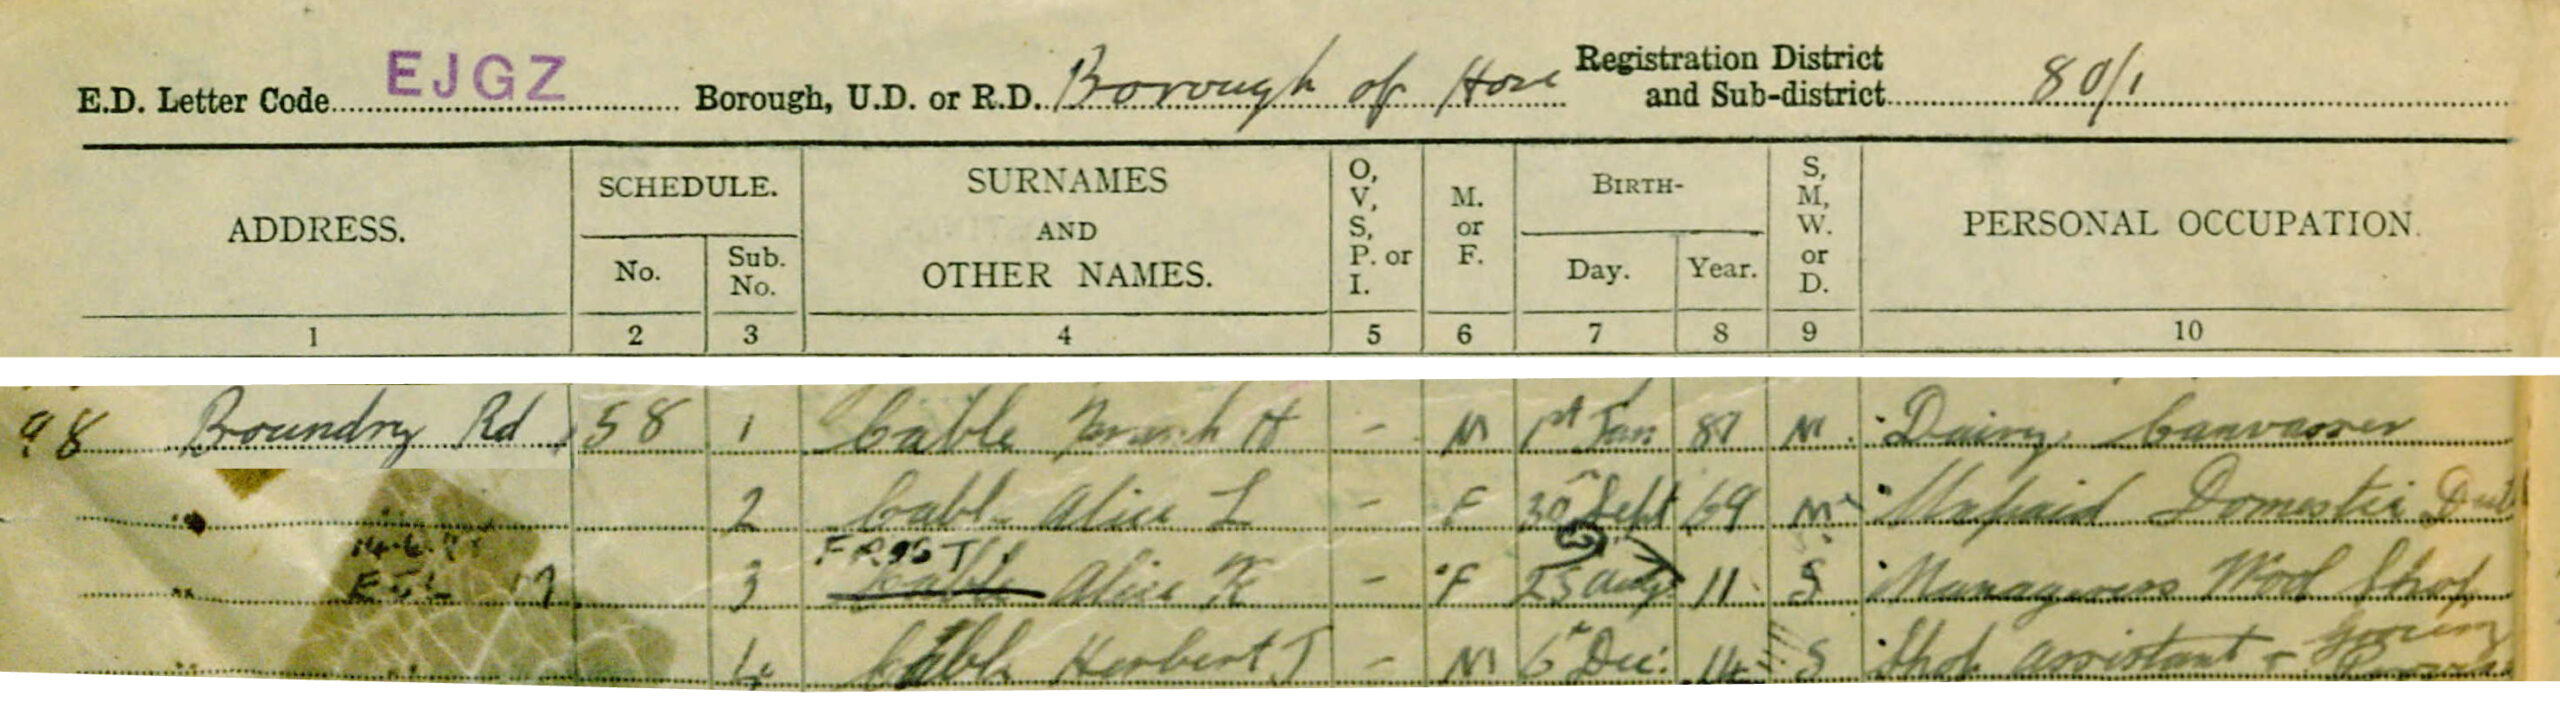 E.D. Letter Code EJGZ Borough, U.D. or R.D. Borough of Hove Registration District and Sub-district 80/1
ADDRESS. SCHEDULE. No. Sub. No. SURNAMES AND OTHER NAMES. O, V, S, P. or I. M. or F. BIRTH- Day. Year. S, M, W. or D. PERSONAL OCCUPATION.
1 2 3 4 5 6 7 8 9 10
98 Boundry Rd 58 1 Cable Frank H - M 1st Jan 87 M. Dairy Canvasser
" 2 Cable Alice L - F 30 Sept 69 M Unpaid Domestic Dut
FROST
" 3 Cable Alice K - F 25 Aug 11 S Manageress Wool Shop
" 4 Cable Herbert J - M 6 Dec. 14 S Shop Assistant -